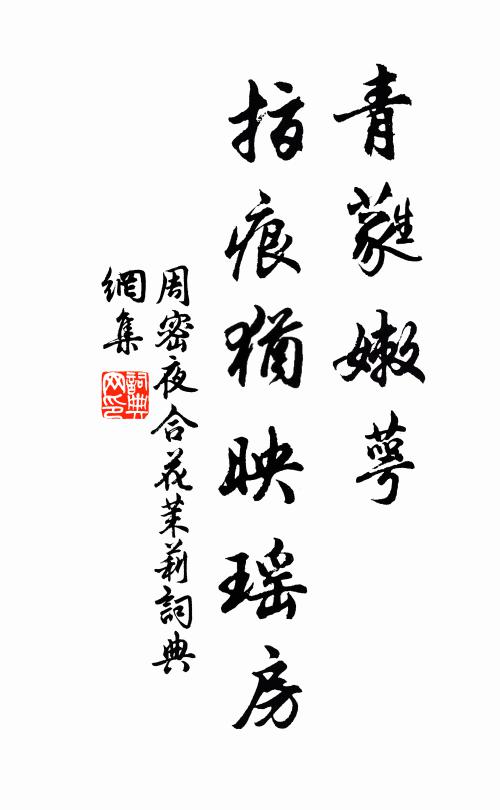 青蕤嫩萼
指痕猶映瑤房
周密夜合花茉莉詞典
網集
詞典
网印